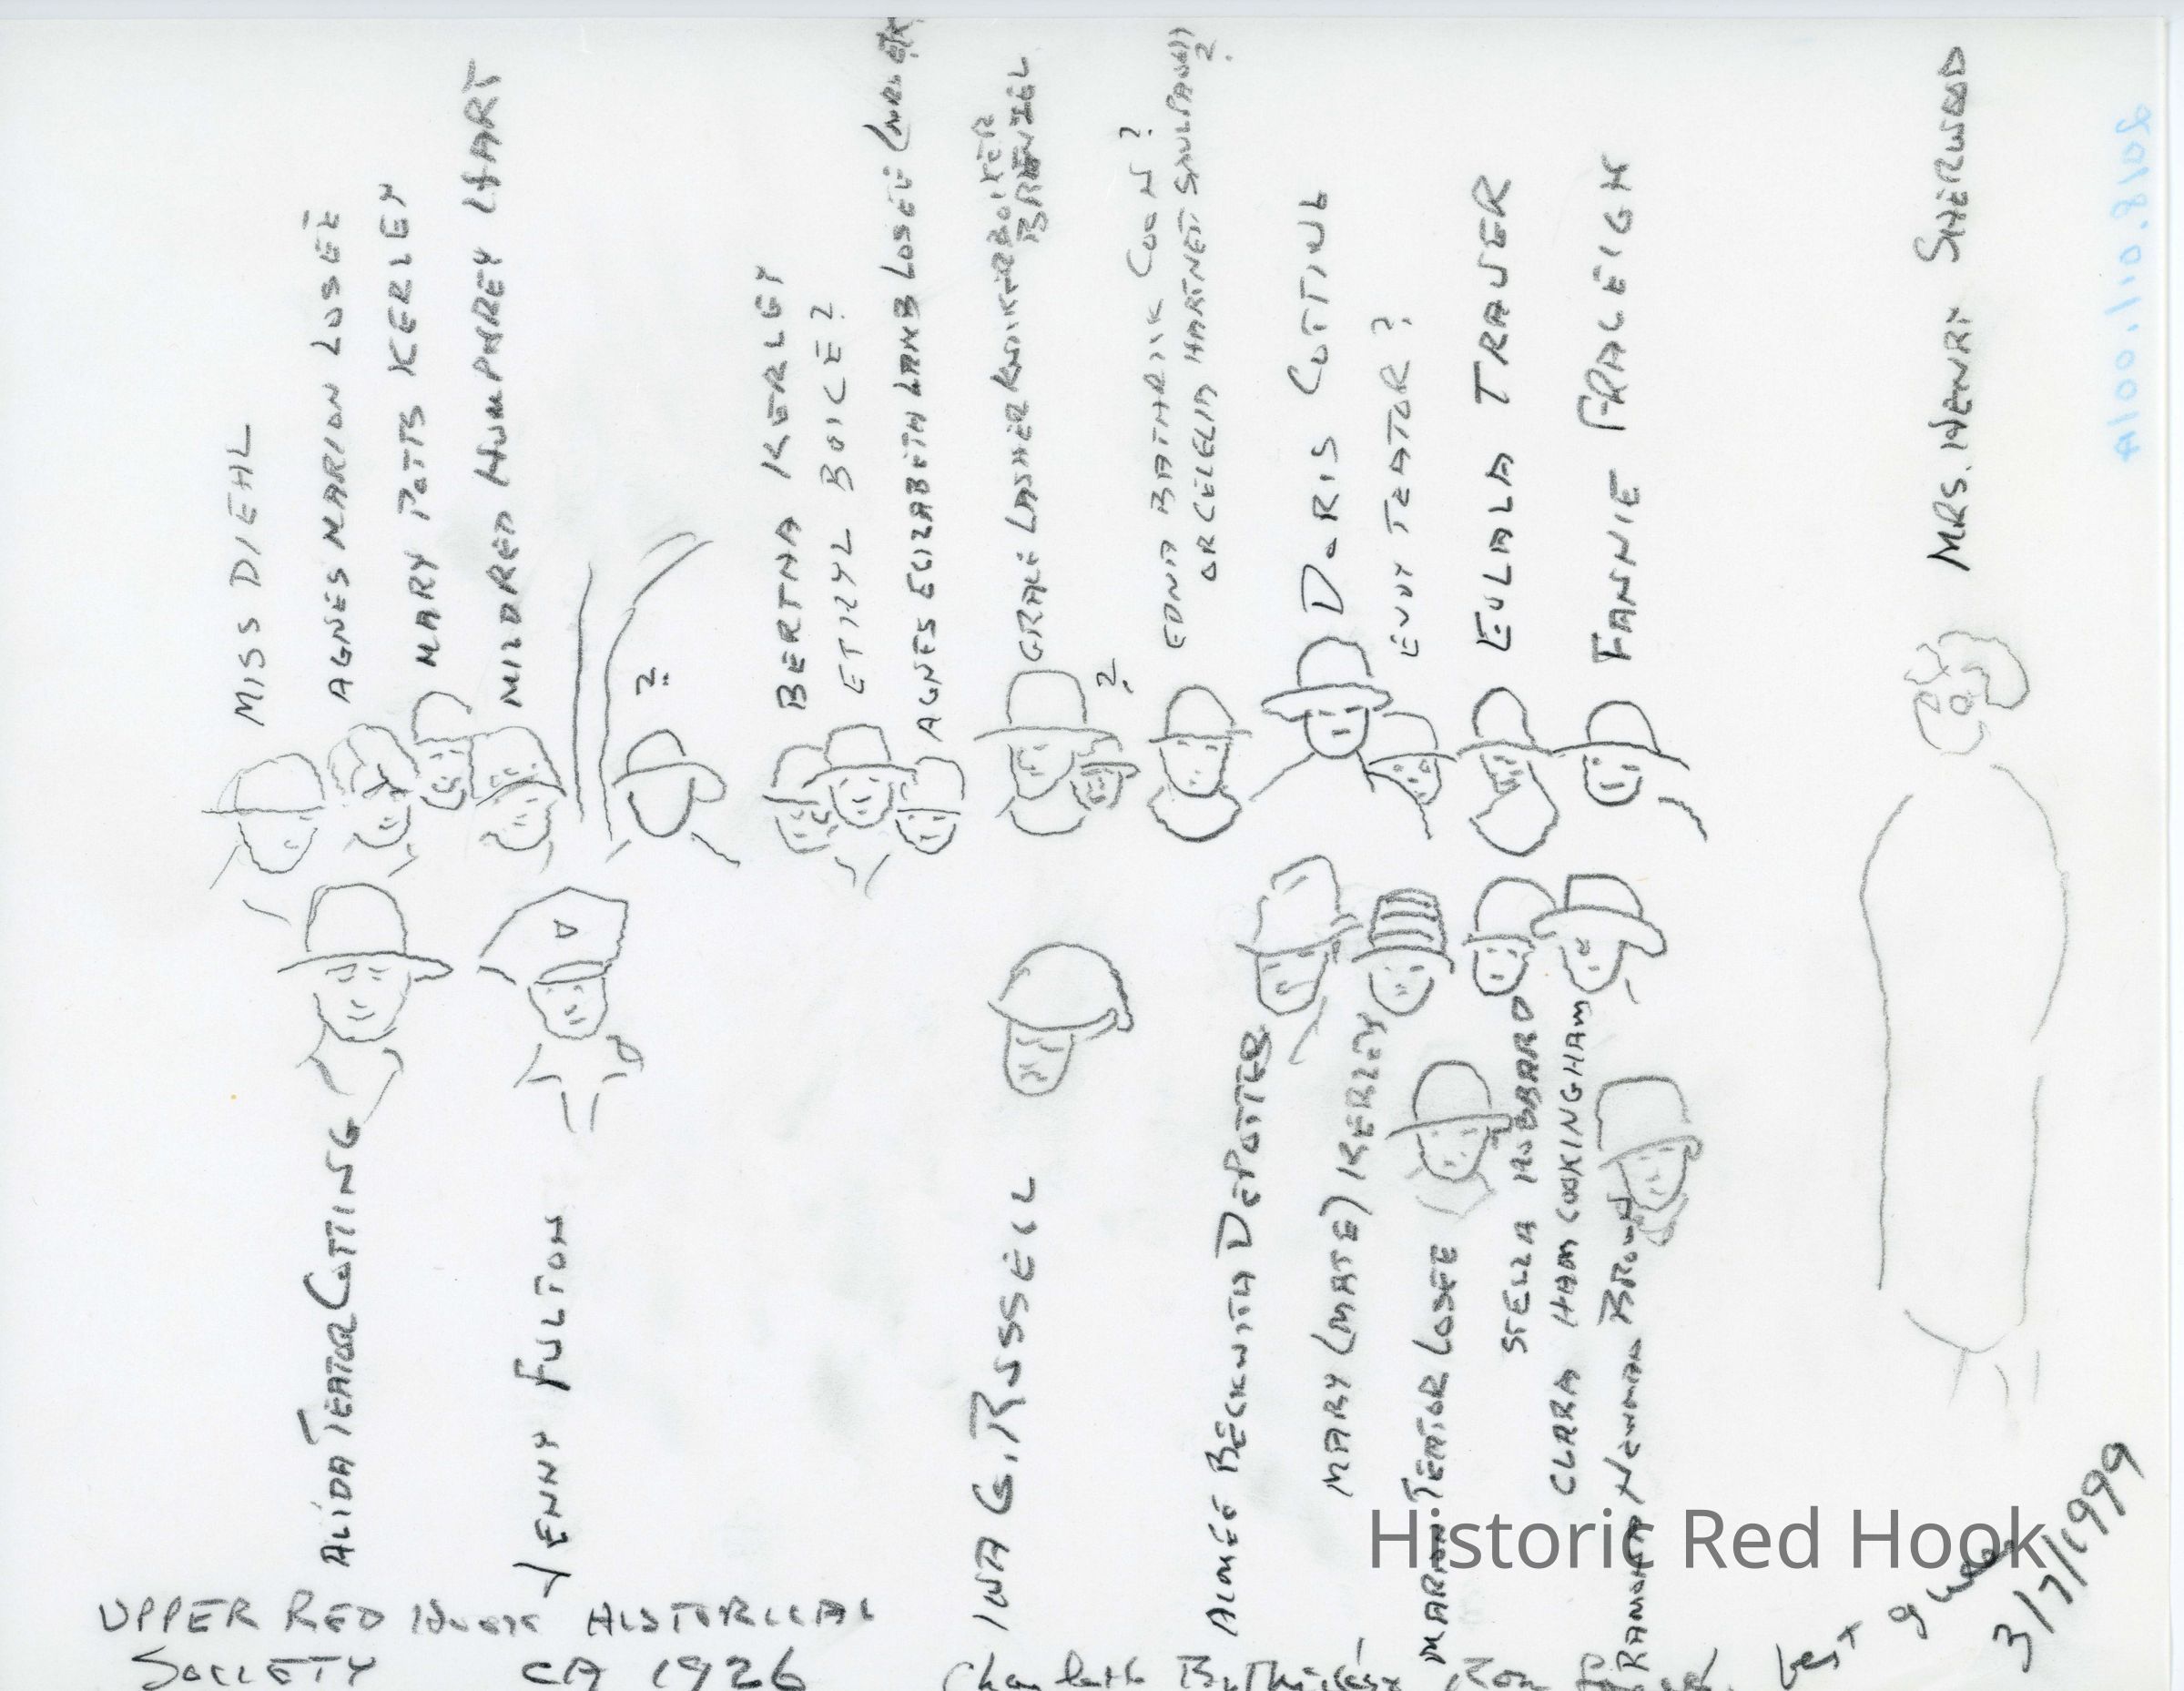 MISS DIEHL
AGNES MARION LOSEE
MARY POTTS KERLEY
MILDRED HUMPHREY HART
?
BERTHA KERLEY
ETHYL BOICE?
AGNES ELIZABETH LAMB LOSEE
GRACE LASHER KNICKERBOCKER
?
EDNA BATHRICK COON?
OR CELELIA HARTNET SAULPAUGH?
DORIS COTTING
EVVY TEATOR?
EULALA TRAVER
FANNIE FRALEIGH
MRS. HENRY SHERWOOD
ALIDA TEATOR COTTING
JENNY FULTON
INA G. RUSSELL
AIMEE BECKWITH DEPOTTER
MARY (MATE) KERLEY
MARION TEATOR LOSEE
STELLA HUBBARD
CLARA HAM COOKINGHAM
RAMONA NEWMAN BROWN
UPPER RED HOOK HISTORICAL
SOCIETY CA 1926
best guess
3/7/1999
A100.1.10.810Z
Historic Red Hook